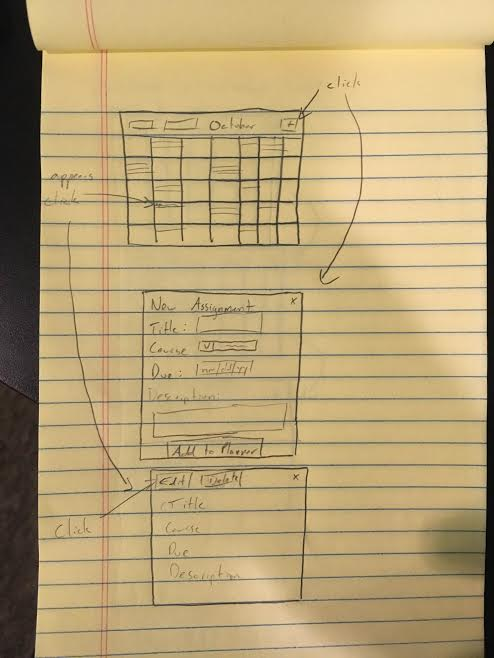 click
October +
appears
click
New Assignment x
Title:
Course v
Due: mm/dd/yy
Description:
Add to Planner
Edit Delete x
Title
Course
Due
Description
Click